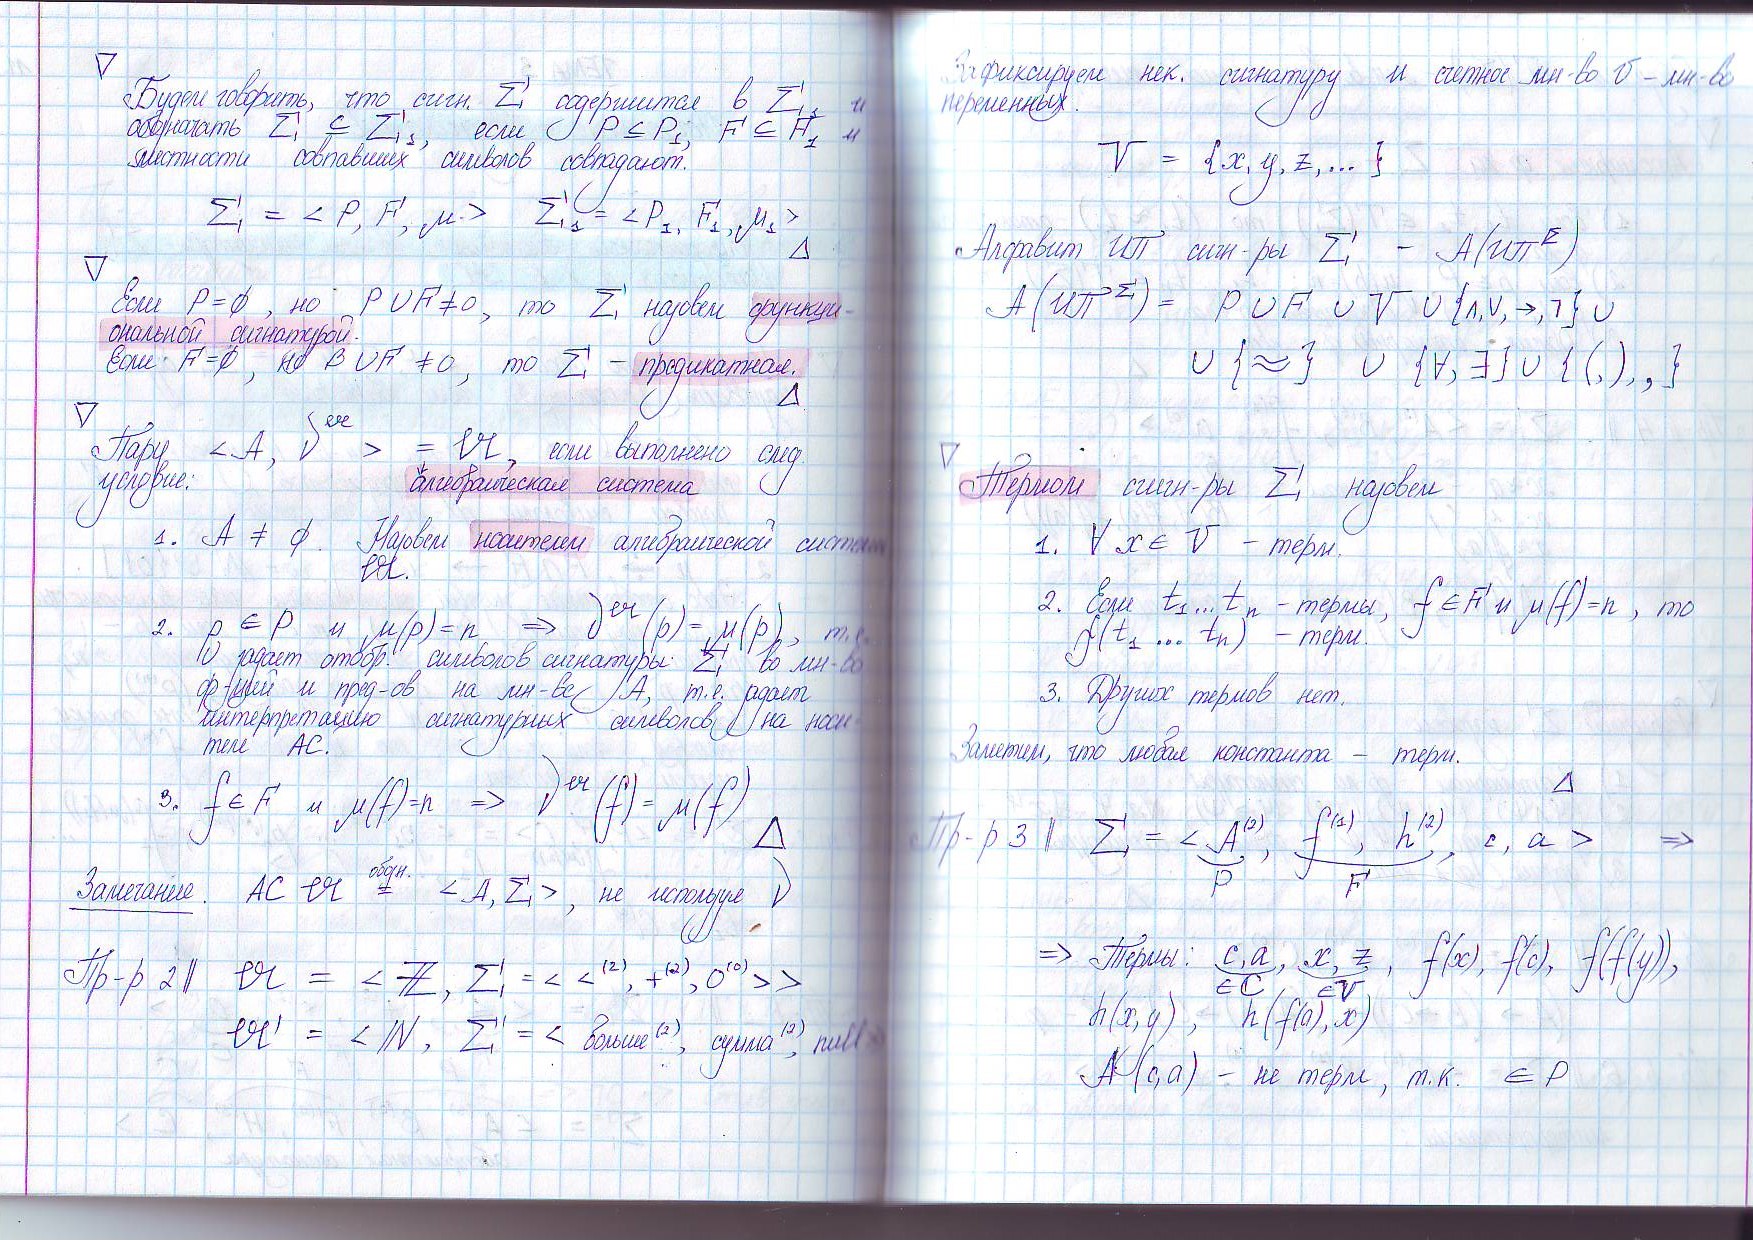 ▽
Будем говорить, что сигн. Σ содержится в Σ₁ и
обозначать Σ ⊆ Σ₁, если P ⊆ P₁, F ⊆ F₁ и
местности совпавших символов совпадают.
Σ = <P, F, μ> Σ₁ = <P₁, F₁, μ₁>
△
▽
Если P = ∅, но P ∪ F ≠ 0, то Σ назовем функци-
ональной сигнатурой.
Если F = ∅, но P ∪ F ≠ 0, то Σ – предикатная.
△
▽
Пару <A, ν^𝔄> = 𝔄, если выполнено след.
условие: алгебраическая система
1. A ≠ ∅. Назвем носителем алгебраической систем
𝔄.
2. p ∈ P и μ(p) = n => ν^𝔄(p) = μ(p), т.е.
ν задает отобр. символов сигнатуры Σ во мн-во
ф-ций и пред-ов на мн-ве A, т.е. задает
интерпретацию сигнатурных символов на носи-
теле АС.
3. f ∈ F и μ(f) = n => ν^𝔄(f) = μ(f)
△
Замечание. АС 𝔄 обозн. = <A, Σ>, не используя ν
Пр-р 2 || 𝔄 = <ℤ, Σ = < <⁽²⁾, +⁽²⁾, 0⁽⁰⁾ >>
𝔄' = <ℕ, Σ' = < больше⁽²⁾, сумма⁽²⁾, null >
Зафиксируем нек. сигнатуру и счетное мн-во V – мн-во
переменных.
V = {x, y, z, ...}
Алфавит ИП сигн-ры Σ – A(ИП^Σ)
A(ИП^Σ) = P ∪ F ∪ V ∪ {∧, ∨, →, ¬} ∪
∪ {≈} ∪ {∀, ∃} ∪ {(, ), ,}
▽
Термом сигн-ры Σ назовем
1. ∀ x ∈ V – терм.
2. Если t₁ ... tₙ – термы, f ∈ F и μ(f) = n, то
f(t₁ ... tₙ) – терм.
3. Других термов нет.
Заметим, что любая константа – терм.
△
Пр-р 3 || Σ = < A⁽²⁾, f⁽¹⁾, h⁽²⁾, c, a > =>
P F
=> Термы: c, a, x, z, f(x), f(c), f(f(y)),
∈C ∈V
h(x, y), h(f(a), x)
A(c, a) – не терм, т.к. ∈ P